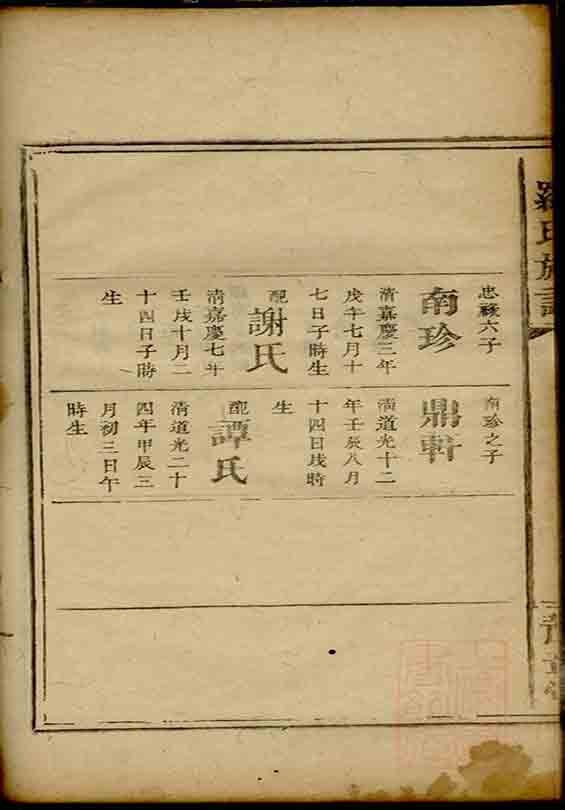 羅氏族譜
忠祿六子
南珍
清嘉慶三年
戊午七月十
七日子時生
配
謝氏
清嘉慶七年
壬戌十月二
十四日子時
生
南珍之子
鼎軒
清道光十二
年壬辰八月
十四日戌時
生
配
譚氏
清道光二十
四年甲辰三
月初三日午
時生